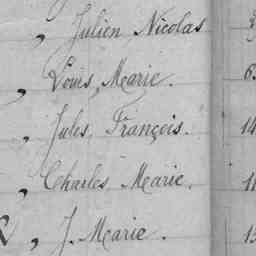 , Julien Nicolas
, Louis, Marie. 6
, Jules, François. 14
, Charles, Marie. 1
, J. Marie. 15